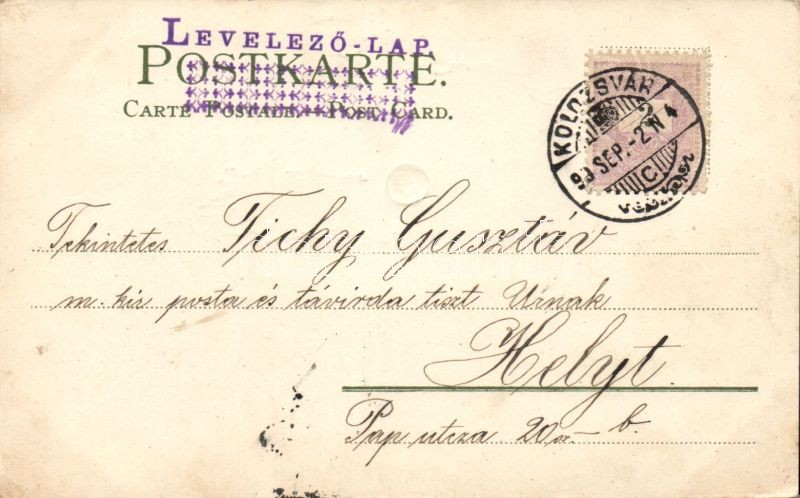 LEVELEZŐ-LAP.
POSTKARTE.
CARTE POSTALE. - POST CARD.
KOLOZSVÁR
SEP. -2 N 4
C
Tekintetes Tichy Gusztáv
m. kir posta és távirda tiszt Úrnak
Helyt.
Pap utcza 20